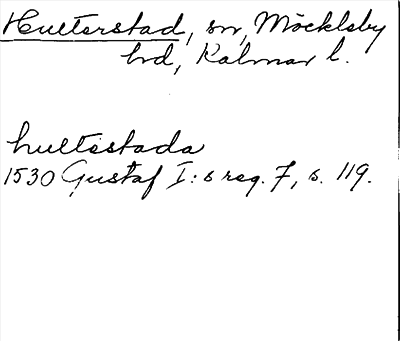 Hulterstad, sn, Möckleby
hd, Kalmar l.
hultestada
1530 Gustaf I:s reg. 7, s. 119.